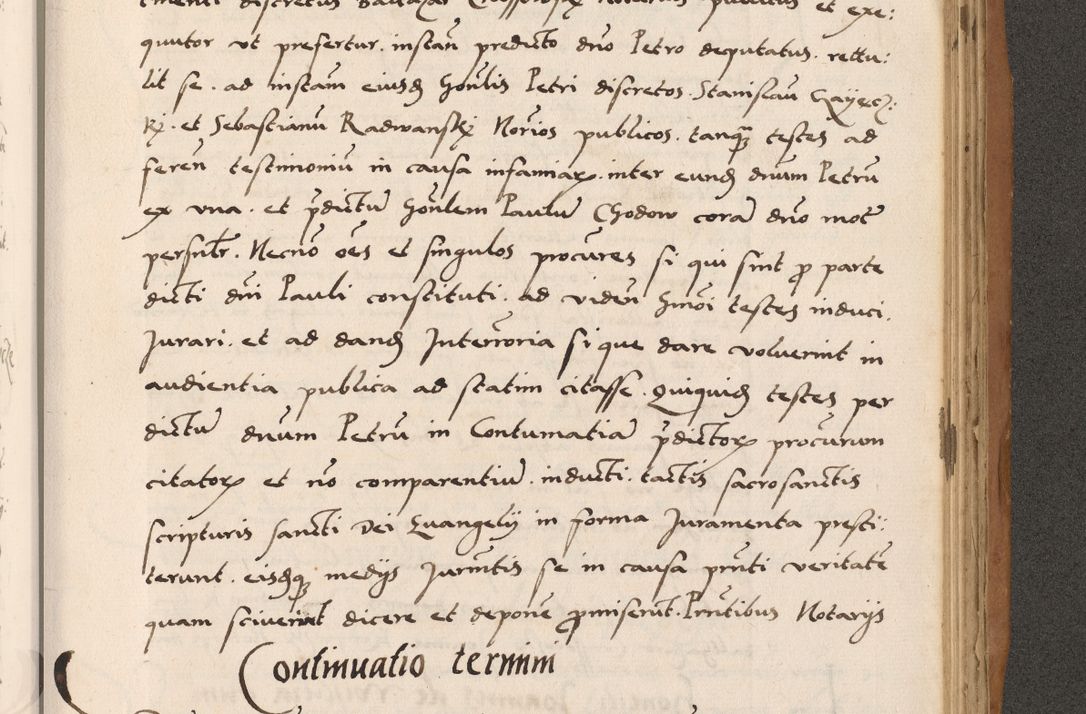 quutor ut prefertur. instan̄ predicto dn̄o Petro deputatus. rettu:
lit se. ad instam̄ eiusd̄ hon̄lis Petri discretos. Stanislau̅ Gayecz:
kj. et Sebastianu̅ Radwanskj Nor̄ios publicos. tanq̄ȝ testes ad
feren̄ testimoniu̅ in causa infamiaꝝ. inter eund̄ dnum Petru̅
ex una. et p̄dictu̅ hon̄lem Paulu̅ Chodow cora̅ dn̄o mot̄
persn̄lr̄. Necno̅ oēs et singulos procūres si qui sint ꝓ parte
dicti dn̄i Pauli constituti. ad viden̄ hmōi testes induci.
Jurari. et ad dand̄ Interr̄oria si que dare voluerint in
audientia publica ad statim citasse. Quiquid̄ testes per
dictu̅ dnum Petru̅ in Contumatia̅ p̄dictoꝝ procūrum
citatoꝝ et no̅ comparentiu̅. inducti. tactis sacrosanctis
scripturis sancti Dei Euangelij in forma Juramenta presti:
terunt. eisd̄qꝫ medijs Jurm̄tis se in causa pn̄ti veritate̅
quam sciverint dicere et depone̅ ꝓmiserūt. Pn̄tibus Notarijs
Continuatio termini